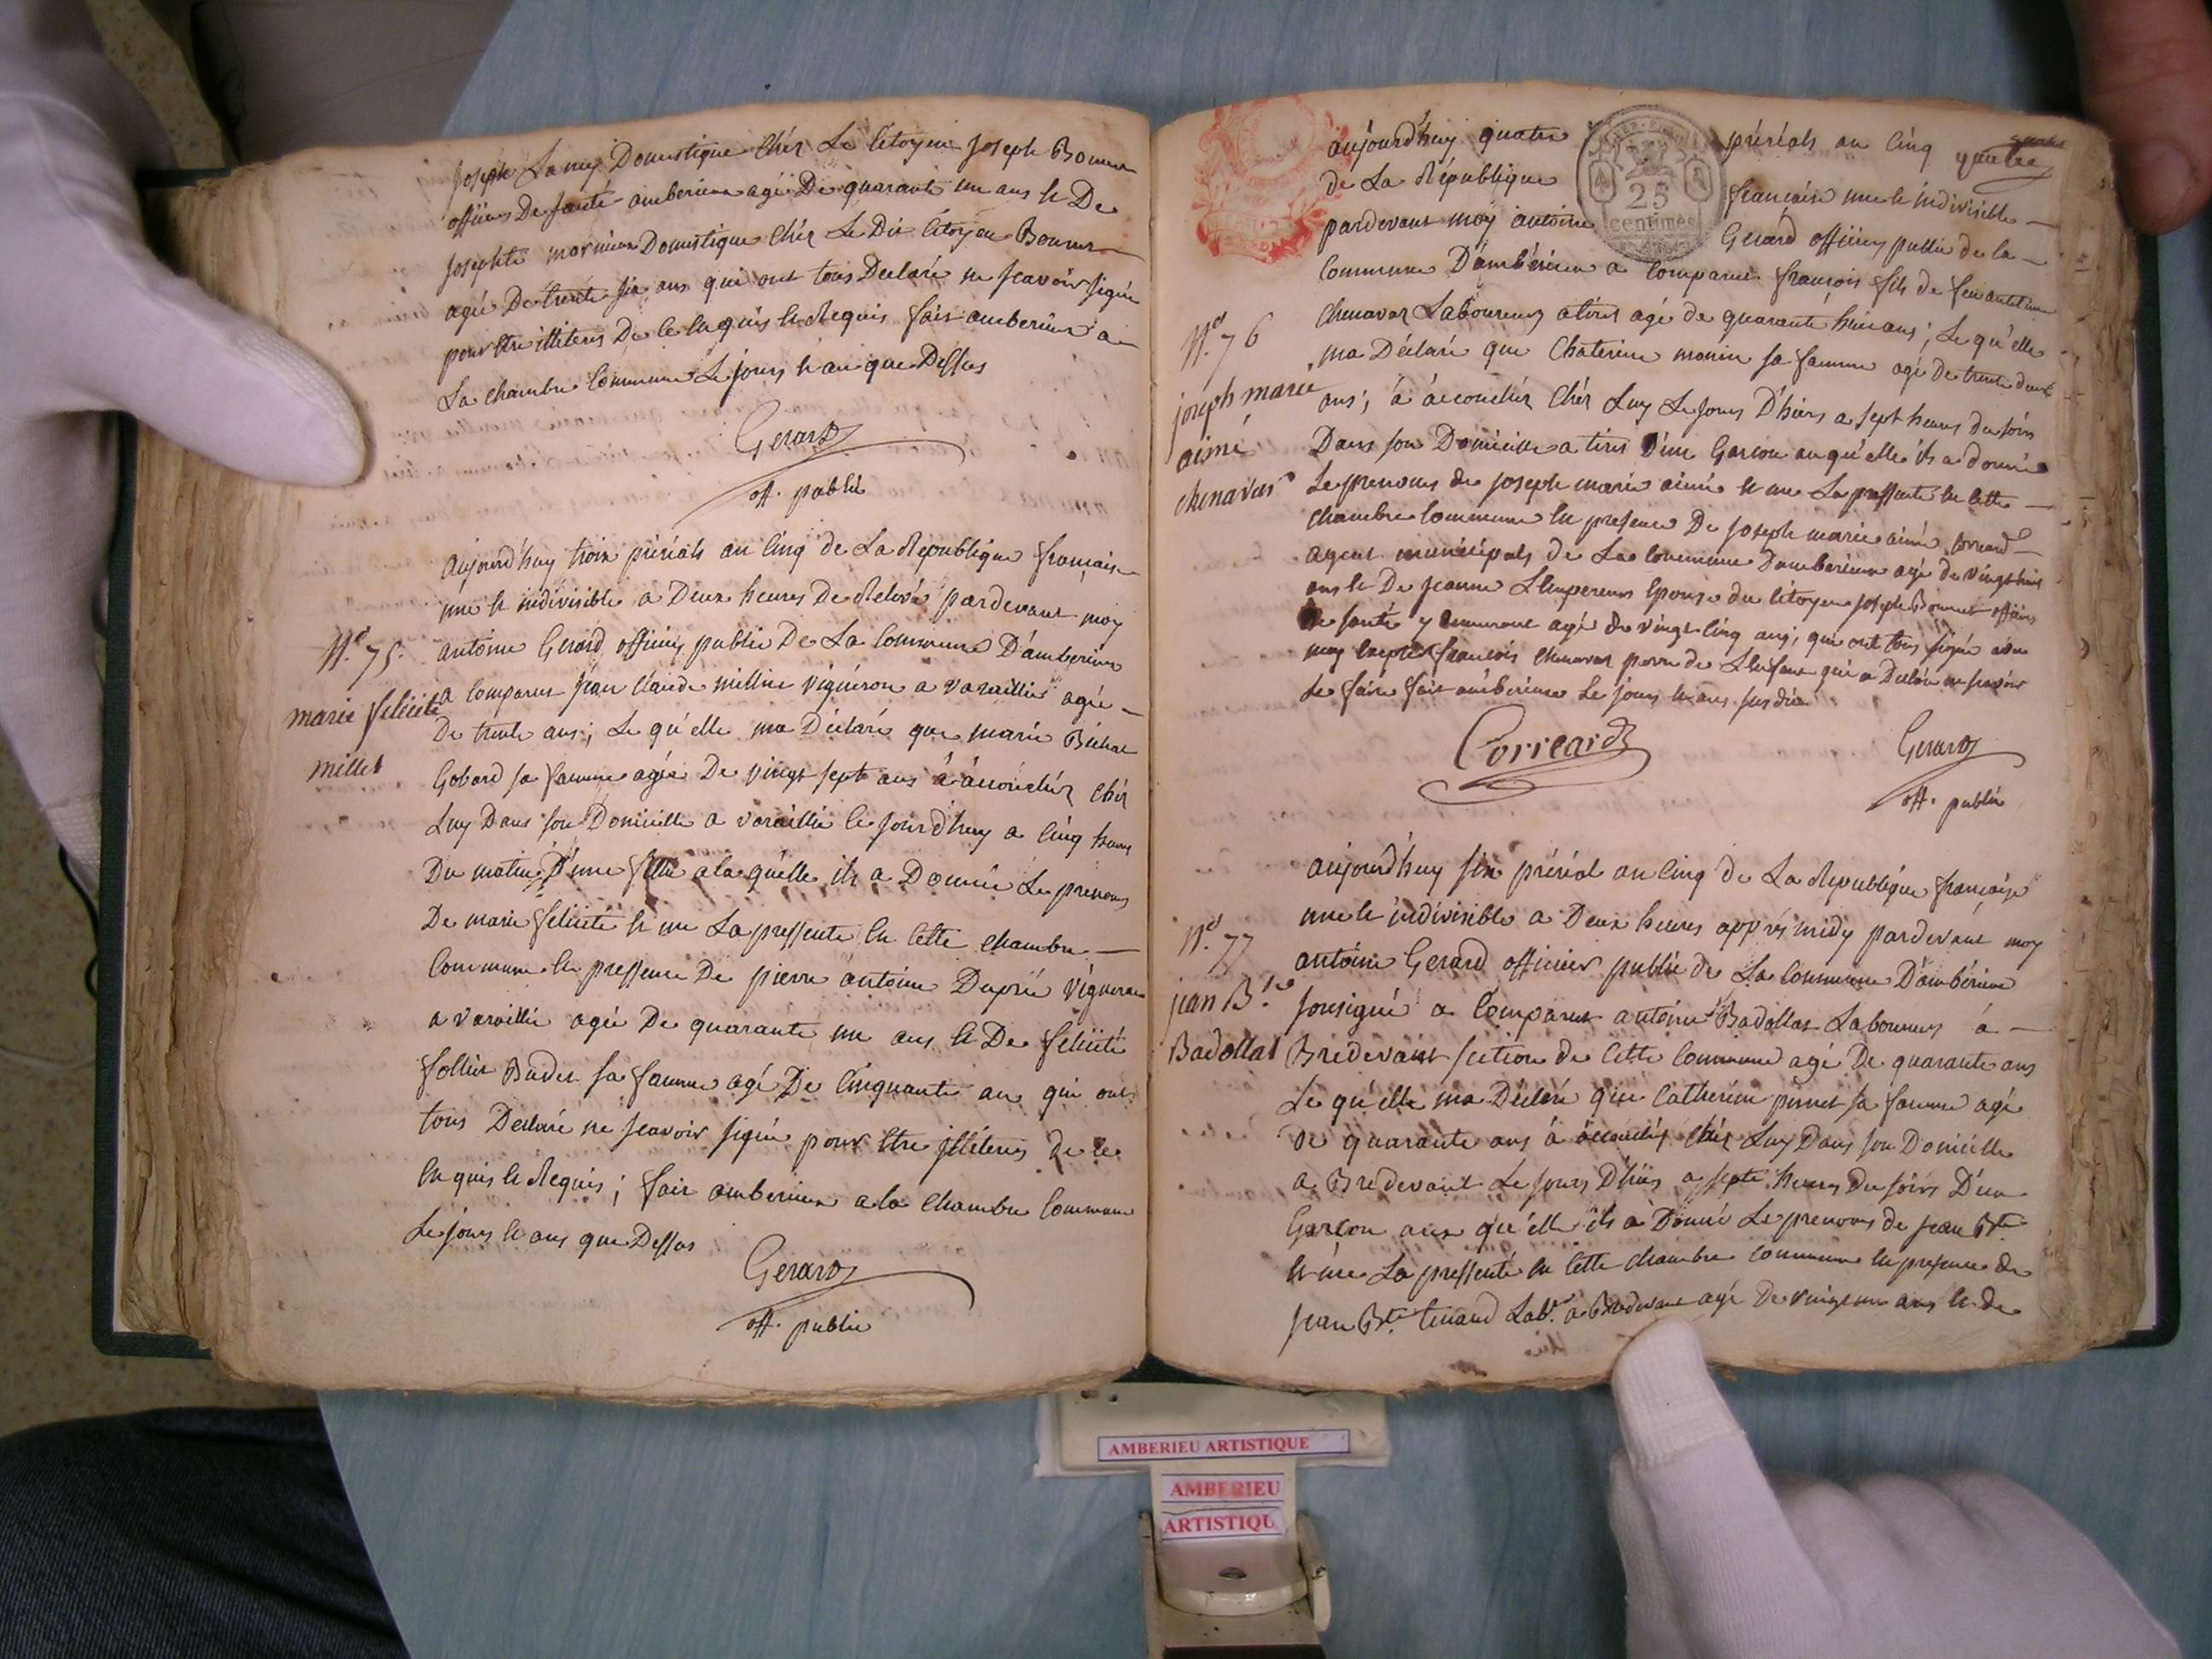 joseph Lamy Domestique Chéz Le Citoyen joseph Bonnet
officiers De santé amberieux agé De quarante un ans et De
josephte mornieu Domestique Chéz Le Dit Citoyen Bonnet
agée De trente six ans qui ont tous Declaré ne scavoir signé
pour être illiterés De ce Enquis et Requis fait amberieux a
La chambre Commune Le jours et an que Dessus
Gerard
off. public
aujourd'huy troix préréals an Cinq de La République française
une et indivisible a Deux heures De Relevé pardevant moy
N.º 75.
antoine Gerard officiers public De La Commune D'amberieux
a Comparut jean Claude millier vigneron a varaillies agée
marie felicité
millet
De trente ans; Le qu'elle ma Déclaré que marie
Gobard sa famme agée De vingt sept ans à accouchéz Chéz
Luy Dans son Domicille a varaillie Ce jourd'huy a Cinq heures
Du matin D'une fille a la quelle ils a Donnée Le prenoms
De marie felicité et me La pressenté En Cette chambre
Commune En pressence De pierre antoine Dupré vigneron
a varaillie agée De quarante un ans et De felicité
follies Budet sa famme agé De Cinquante an qui ont
tous Declaré ne scavoir signé pour Etre illiterés de ce
Enquis et Requis; fait amberieux a la Chambre Commune
Le jours et ans que Dessus
Gerard
off. public
aujourd'huy quatre préréals an Cinq quatre
de La République française une et indivisible
pardevant moy antoine Gerard officiers public de la
25
centimes
Commune D'ambérieux a Comparut françois fils de feu antoine
N.º 76
chenavas Laboureurs a tiret agé de quarante huit ans; Le qu'elle
ma Déclaré que Chaterine monin sa famme agé De trente deux
joseph marie
aimé
chenavas
ans; à accouchéz Chéz Luy Le jours D'hiers a sept heures du soirs
Dans son Domicille a tiret D'un Garcon au qu'elle ils a donné
Le prenoms de joseph marie aimé et me La pressenté En Cette
chambre Commune En presence De joseph marie aimé Correard
agent municipals de La Commune D'amberieux agé de vingt huit
ans et De jeanne L'Empereurs Epouse du Citoyen joseph Bonnet officiers
De santé y demeurant agé de vingt Cinq ans; qui ont tous signé avec
moy Excepté françois chenavas perre de L'Enfant qui a Declaré ne scavoir
Le faire fait ambérieux Le jours et ans susdit
Correard
Gerard
off. public
aujourd'huy six préréal an Cinq de La Republique française
une et indivisible a Deux heures apprés midy pardevant moy
N.º 77
antoine Gerard officiers public de La Commune D'ambérieux
jean B.te
Badollat
sousigné a Comparut antoine Badollat Laboureurs à
Bredevant section de Cette Commune agé De quarante ans
Le qu'elle ma Déclaré que Catherine sa famme agé
de quarante ans à accouchéz Chéz Luy Dans son Domicille
a Bredevant Le jours D'hies a sept heures Du soirs D'un
Garçon aux qu'elle ils a Donné Le prenoms de jean Bte
et me La pressenté En Cette chambre Commune En presence de
jean Bte tenand Lab.r a Bredevant agé De vingt un ans et de
AMBERIEU ARTISTIQUE
AMBERIEU
ARTISTIQU